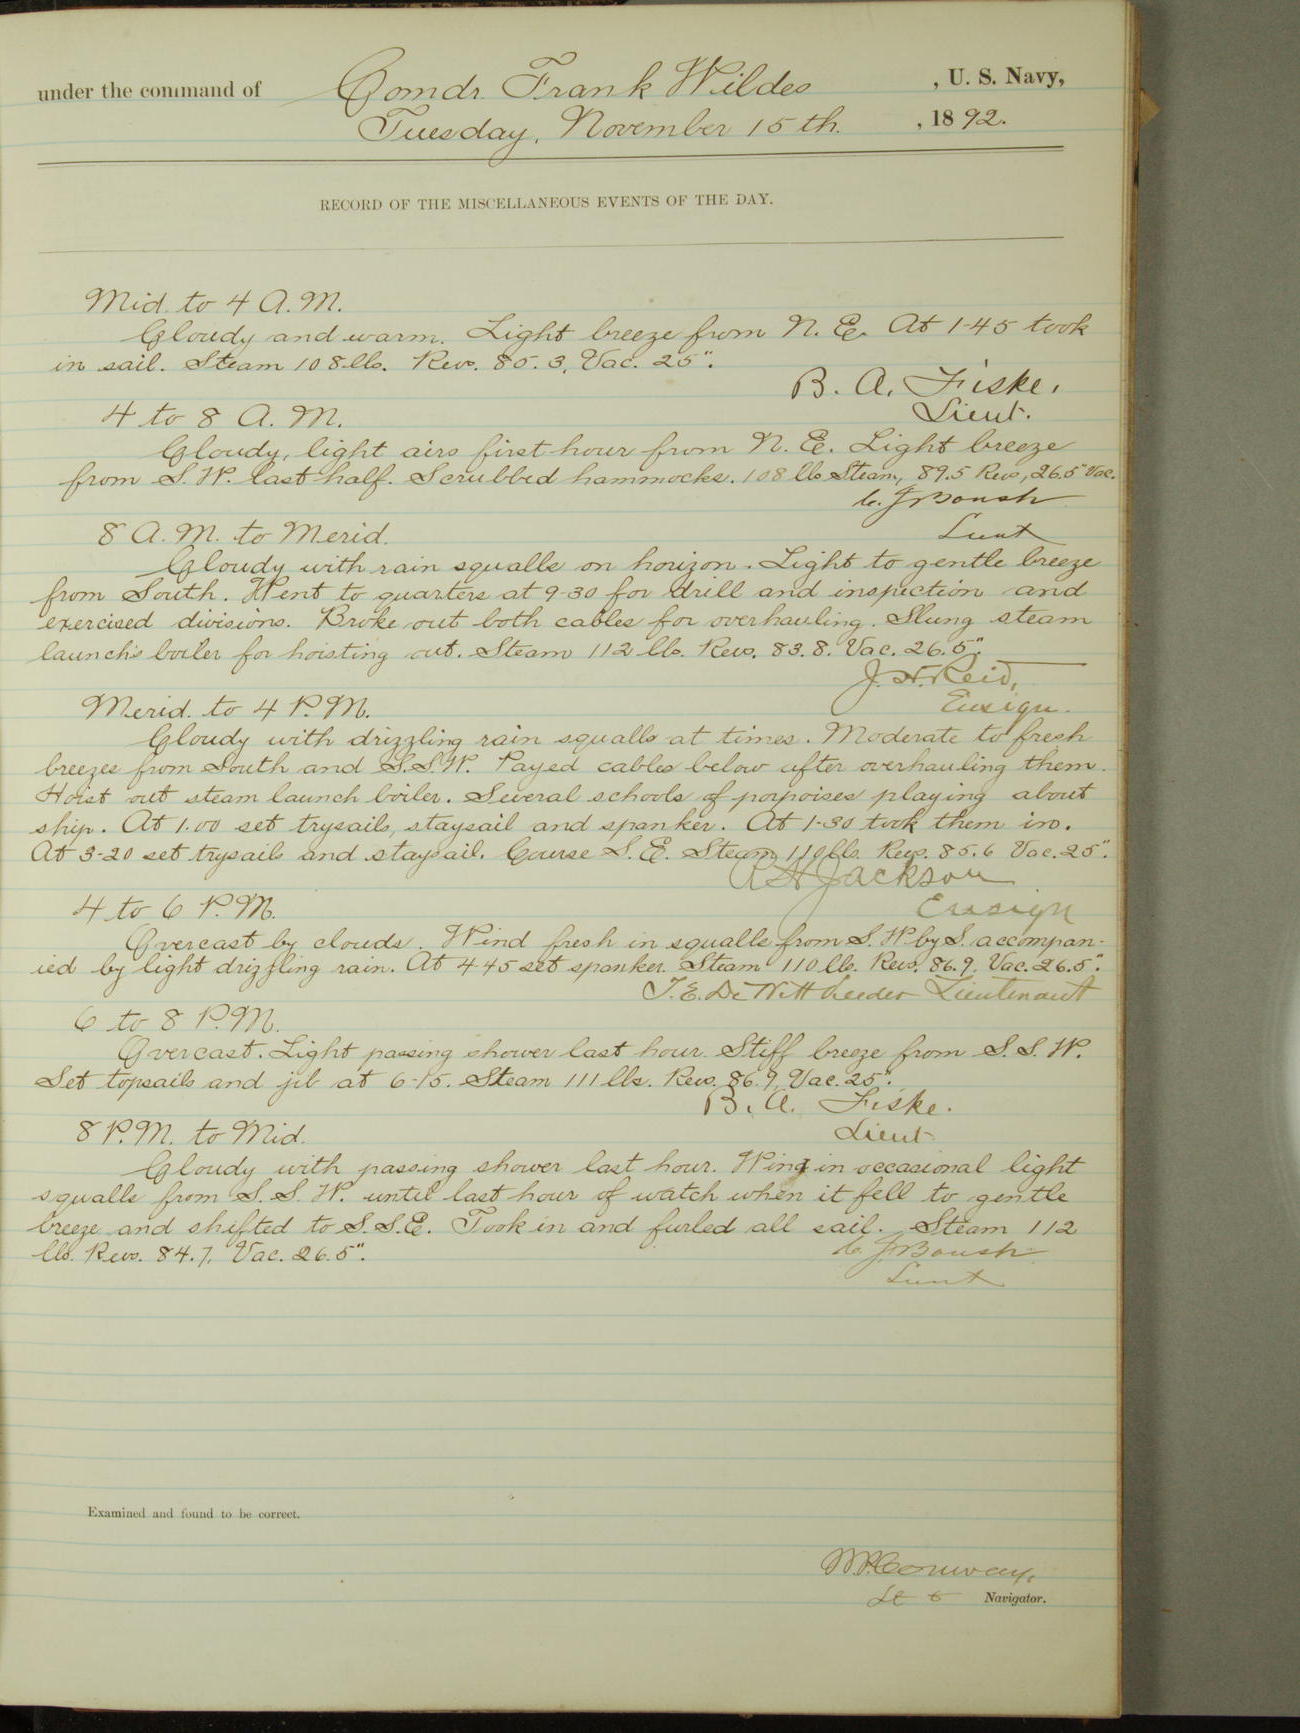 under the command of Comdr. Frank Wildes , U. S. Navy,
Tuesday, November 15th. , 1892.
RECORD OF THE MISCELLANEOUS EVENTS OF THE DAY.
Mid. to 4 A.M.
Cloudy and warm. Light breeze from N. E. At 1-45 took
in sail. Steam 108 lbs. Revs. 85.3, Vac. 25".
B. A. Fiske,
Lieut.
4 to 8 A. M.
Cloudy, light airs first hour from N. E. Light breeze
from S. W. last half. Scrubbed hammocks. 108 lb Steam, 89.5 Revs, 26.5" Vac.
C. J. Boush
Lieut
8 A. M. to Merid.
Cloudy with rain squalls on horizon. Light to gentle breeze
from South. Went to quarters at 9-30 for drill and inspection and
exercised divisions. Broke out both cables for overhauling. Slung steam
launch's boiler for hoisting out. Steam 112 lbs. Revs. 83.8. Vac. 26.5".
J. H. Reid,
Ensign.
Merid. to 4 P.M.
Cloudy with drizzling rain squalls at times. Moderate to fresh
breezes from South and S.S.W. Payed cables below after overhauling them.
Hoist out steam launch boiler. Several schools of porpoises playing about
ship. At 1.00 set trysails, staysail and spanker. At 1-30 took them in.
At 3-20 set trysails and staysail. Course S. E. Steam 110 lbs. Revs. 85.6 Vac. 25".
R H Jackson
Ensign
4 to 6 P.M.
Overcast by clouds. Wind fresh in squalls from S. W. by S. accompan-
ied by light drizzling rain. At 4 45 set spanker. Steam 110 lbs. Revs. 86.9. Vac. 26.5".
T. E. DeWitt Veeder Lieutenant
6 to 8 P.M.
Overcast. Light passing shower last hour. Stiff breeze from S. S. W.
Set topsails and jib at 6-15. Steam 111 lbs. Revs. 86.9, Vac. 25".
B. A. Fiske.
Lieut
8 P.M. to Mid.
Cloudy with passing shower last hour. Wind in occasional light
squalls from S. S. W. until last hour of watch when it fell to gentle
breeze and shifted to S.S.E. Took in and furled all sail. Steam 112
lbs. Revs. 84.7, Vac. 26.5".
C. J. Boush
Lieut
Examined and found to be correct.
W.P. Conway,
Lt Navigator.